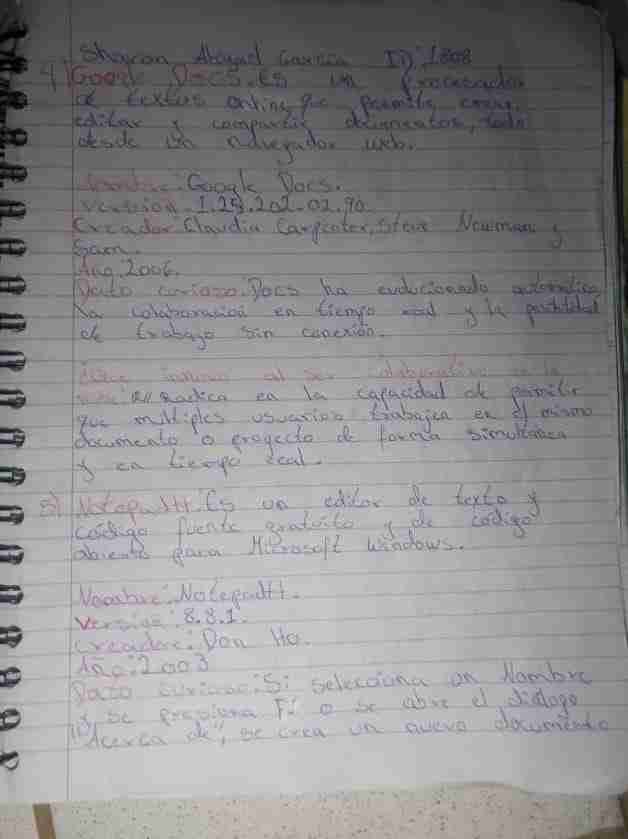 Sharon Abigail Garcia ID: 1808
4) Google Docs. Es un procesador
de textos online que permite crear,
editar y compartir documentos, todo
desde un navegador web.
Nombre: Google Docs.
Version. 1.25.202.02.90
Creador Claudia Carpenter, Steve Newman y
Sam.
Año. 2006.
Dato curioso: Docs ha evolucionado automatica
la colaboracion en tiempo real y la posibilidad
de trabajo sin conexión.
al ser colaborativo en la
R// Radica en la capacidad de permitir
que multiples usuarios trabajen en el mismo
documento o proyecto de forma simultanea
y en tiempo real.
5) Notepad++. Es un editor de texto y
codigo fuente gratuito y de codigo
abierto para Microsoft Windows.
Nombre: Notepad++.
Version: 8.8.1.
Creador: Don Ho.
Año: 2003
Dato curioso: Si selecciona un Nombre
y se presiona F1 o se abre el diálogo
"Acerca de", se crea un nuevo documento